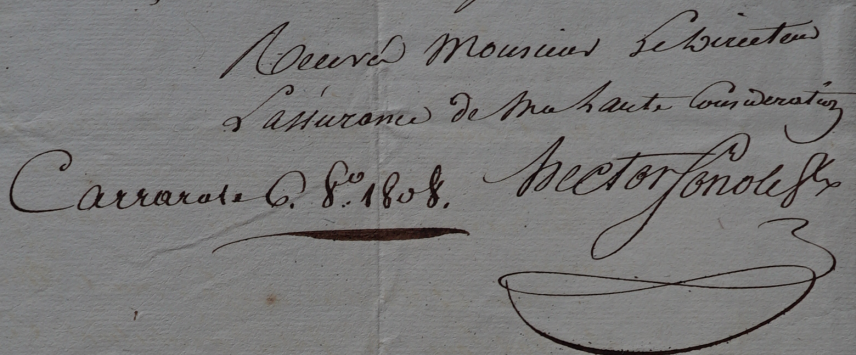 Recevés Monsieur Le Directeur
L'assurance de Ma haute Consideration
Carrara le 6. 8.º 1808. hector